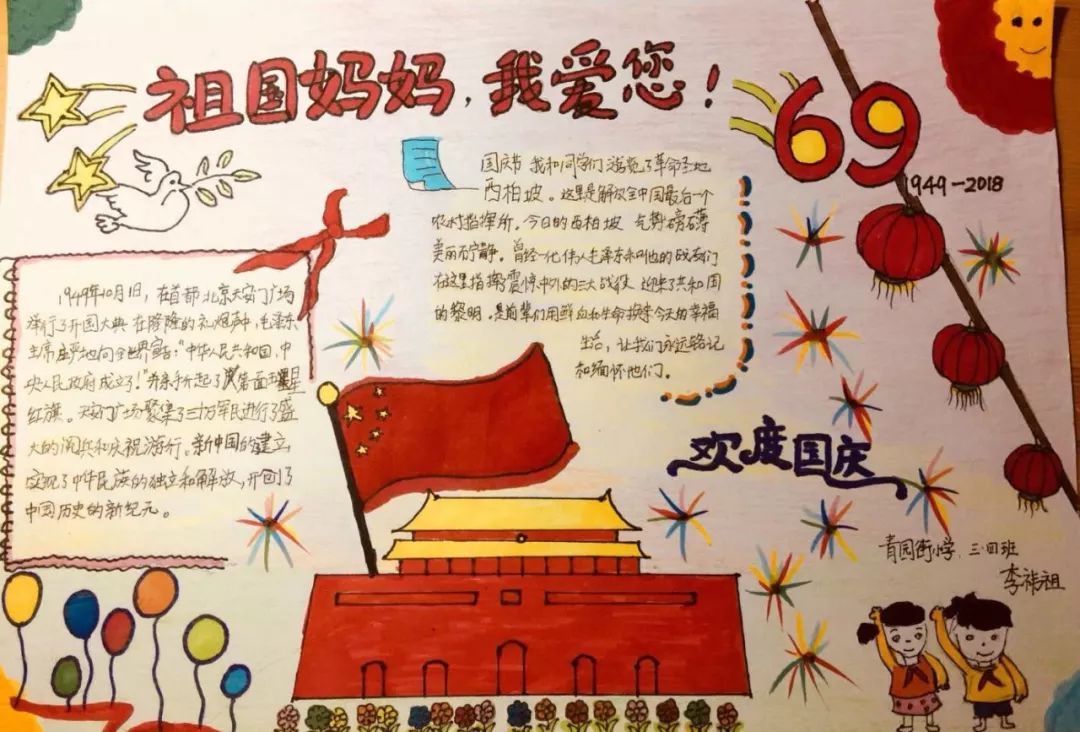 祖国妈妈，我爱您！
69
1949-2018
国庆节 我和同学们 游览了革命圣地
西柏坡。这里是解放全中国最后一个
农村指挥所。今日的西柏坡 气势磅礴
美丽而宁静。曾经一代伟人毛泽东和他的战友们
在这里指挥震惊中外的三大战役 迎来了共和国
的黎明。是前辈们用鲜血和生命换来今天的幸福
生活，让我们永远铭记
和缅怀他们。
1949年10月1日，在首都北京天安门广场
举行了开国大典 在隆隆的礼炮声中，毛泽东
主席庄严地向全世界宣告："中华人民共和国，中
央人民政府成立了！"并亲手升起了第一面五星
红旗。天安门广场聚集了三十万军民进行了盛
大的阅兵和庆祝游行。新中国的建立，
实现了中华民族的独立和解放，开创了
中国历史的新纪元。
欢度国庆
青园街小学、三·四班
李祎祖